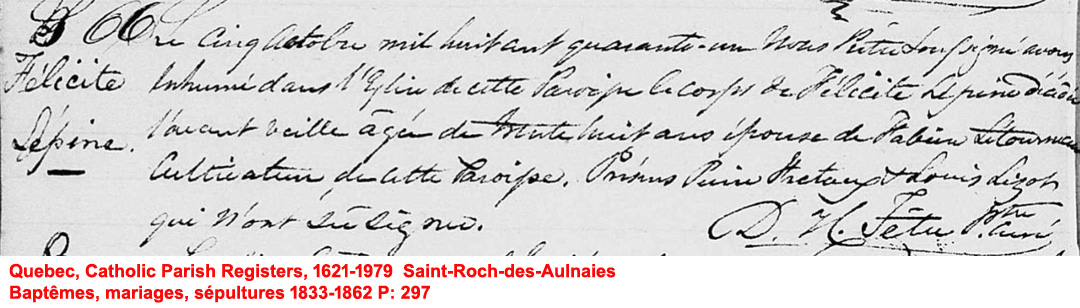 S 66 Le cinq Octobre mil huit cent quarante-un Nous Prêtre Soussigné avons
Félicité inhumé dans l'Eglise de cette Paroisse le corps de Félicité Lépine décédée
Lépine. l'avant veille âgée de trente huit ans épouse de Fabien Letourneau
Cultivateur de cette Paroisse. Présens Pierre & Louis Lizot
qui N'ont Sû Signer. D. H. Têtu Ptre
Curé
Quebec, Catholic Parish Registers, 1621-1979 Saint-Roch-des-Aulnaies
Baptêmes, mariages, sépultures 1833-1862 P: 297